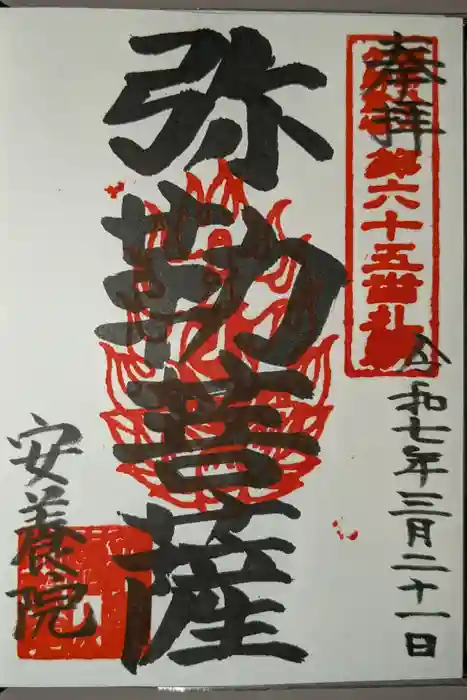 奉拝
第六十五番札所
令和七年三月二十一日
弥勒菩薩
安養院